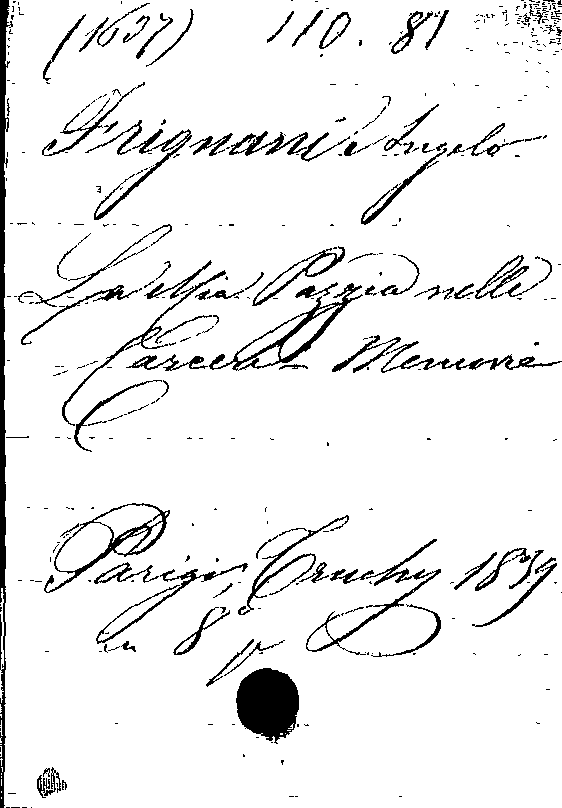 (1637) 110. 87
Frignani Angelo
La Mia Pazzia nelle
Carceri - Memorie
Parigi, Truchy 1839
in 8°